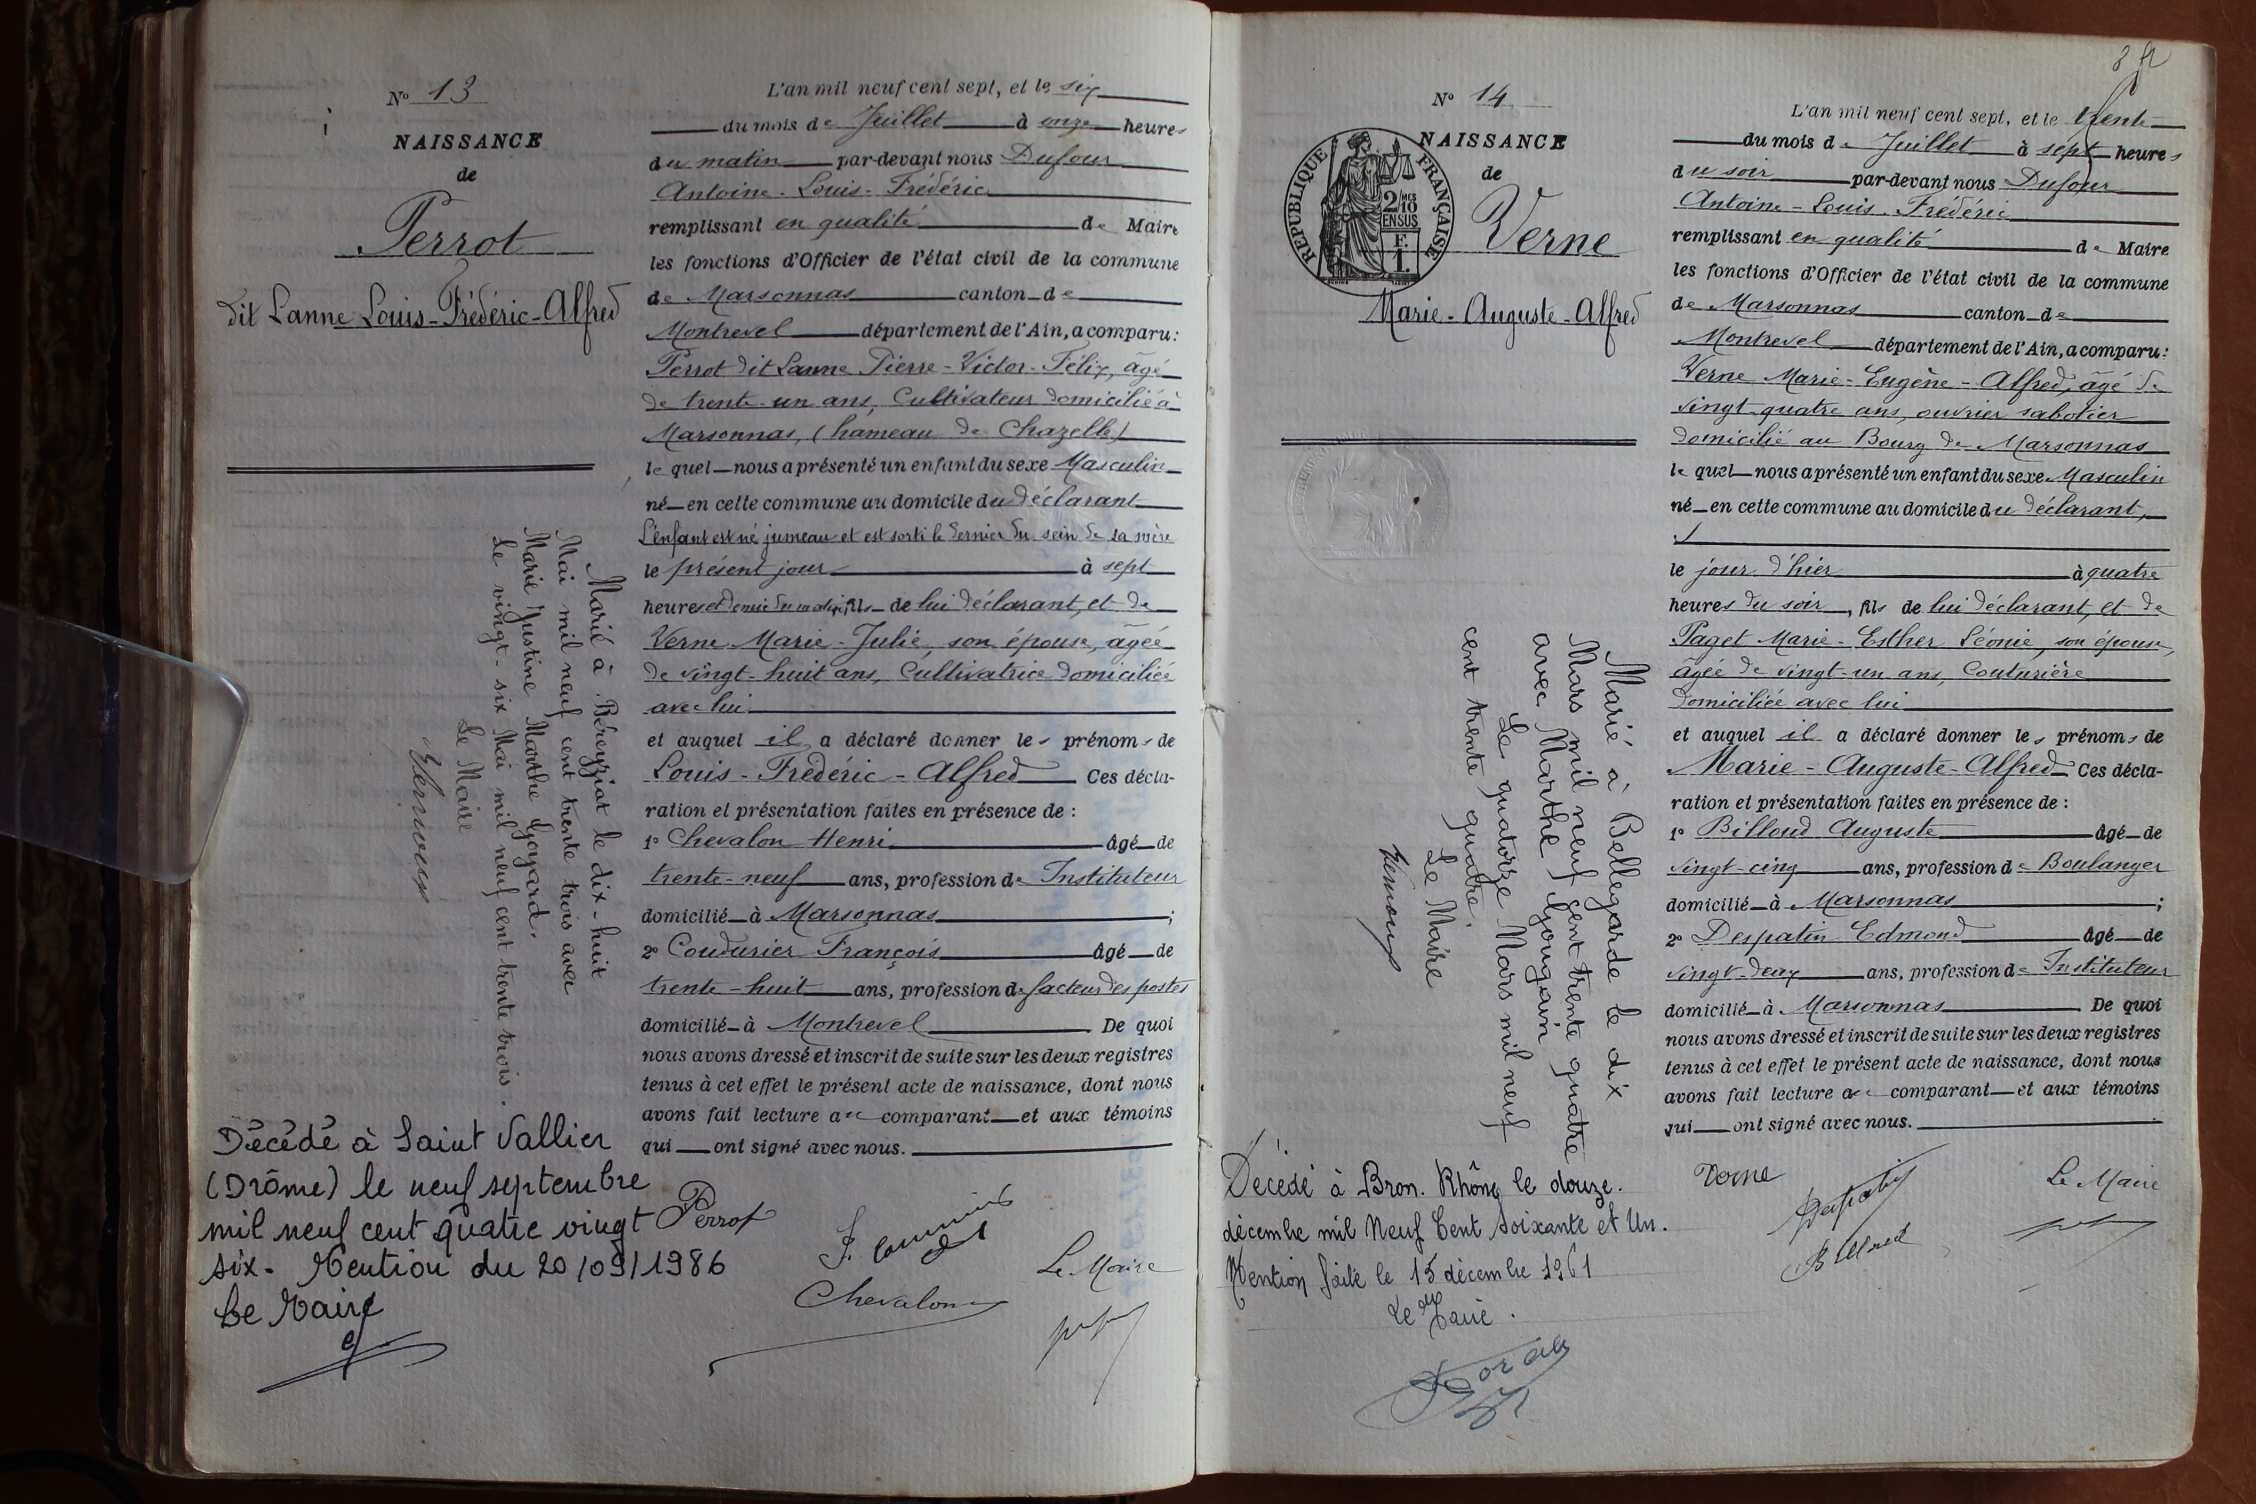 N° 13
NAISSANCE
de
Perrot
dit Lanne Louis-Frédéric-Alfred
L'an mil neuf cent sept, et le six
du mois de Juillet à onze heures
du matin par-devant nous Dufour
Antoine-Louis-Frédéric
remplissant en qualité de Maire
les fonctions d'Officier de l'état civil de la commune
de Marsonnas canton de
Montrevel département de l'Ain, a comparu:
Perrot dit Lanne Pierre-Victor-Félix, âgé
de trente-un ans, Cultivateur domicilié à
Marsonnas, (hameau de Chazelle)
le quel nous a présenté un enfant du sexe Masculin
né en cette commune au domicile du déclarant
L'enfant est né jumeau et est sorti le dernier du sein de sa mère
le présent jour à sept
heures et demie du matin, fils de lui déclarant, et de
Verne Marie-Julie, son épouse, âgée
de vingt-huit ans, Cultivatrice domiciliée
avec lui
et auquel il a déclaré donner les prénoms de
Louis-Frédéric-Alfred Ces décla-
ration et présentation faites en présence de:
1° Chevalon Henri âgé de
trente-neuf ans, profession de Instituteur
domicilié à Marsonnas;
2° Coudurier François âgé de
trente-huit ans, profession de facteur des postes
domicilié à Montrevel. De quoi
nous avons dressé et inscrit de suite sur les deux registres
tenus à cet effet le présent acte de naissance, dont nous
avons fait lecture au comparant et aux témoins
qui ont signé avec nous.
Marié à Béreyziat le dix-huit
Mai mil neuf cent trente trois avec
Marie Justine Marthe Goyard.
Le vingt-six Mai mil neuf cent trente trois.
Le Maire
Décédé à Saint Vallier
(Drôme) le neuf septembre
mil neuf cent quatre vingt
six. Mention du 20/09/1986
Le Maire
Perrot
Chevalon
Le Maire
N° 14
NAISSANCE
de
Verne
Marie-Auguste-Alfred
RÉPUBLIQUE FRANÇAISE
2/10
EN SUS
F.
1.
L'an mil neuf cent sept, et le trente
du mois de Juillet à sept heures
du soir par-devant nous Dufour
Antoine-Louis-Frédéric
remplissant en qualité de Maire
les fonctions d'Officier de l'état civil de la commune
de Marsonnas canton de
Montrevel département de l'Ain, a comparu:
Verne Marie-Eugène-Alfred, âgé de
vingt-quatre ans, ouvrier sabotier
domicilié au Bourg de Marsonnas
le quel nous a présenté un enfant du sexe Masculin
né en cette commune au domicile du déclarant,
le jour d'hier à quatre
heures du soir, fils de lui déclarant, et de
Paget Marie-Esther Léonie, son épouse,
âgée de vingt-un ans, Couturière
domiciliée avec lui
et auquel il a déclaré donner les prénoms de
Marie-Auguste-Alfred Ces décla-
ration et présentation faites en présence de:
1° Billoud Auguste âgé de
vingt-cinq ans, profession de Boulanger
domicilié à Marsonnas;
2° Despatin Edmond âgé de
vingt-deux ans, profession de Instituteur
domicilié à Marsonnas. De quoi
nous avons dressé et inscrit de suite sur les deux registres
tenus à cet effet le présent acte de naissance, dont nous
avons fait lecture au comparant et aux témoins
qui ont signé avec nous.
Marié à Bellegarde le dix
Mars mil neuf cent trente quatre
avec Marthe Gougain
Le quatorze Mars mil neuf
cent trente quatre.
Le Maire
Décédé à Bron. Rhône le douze.
décembre mil Neuf Cent Soixante et Un.
Mention faite le 15 décembre 1961
Le Maire.
Verne
Despatin
Billoud
Le Maire